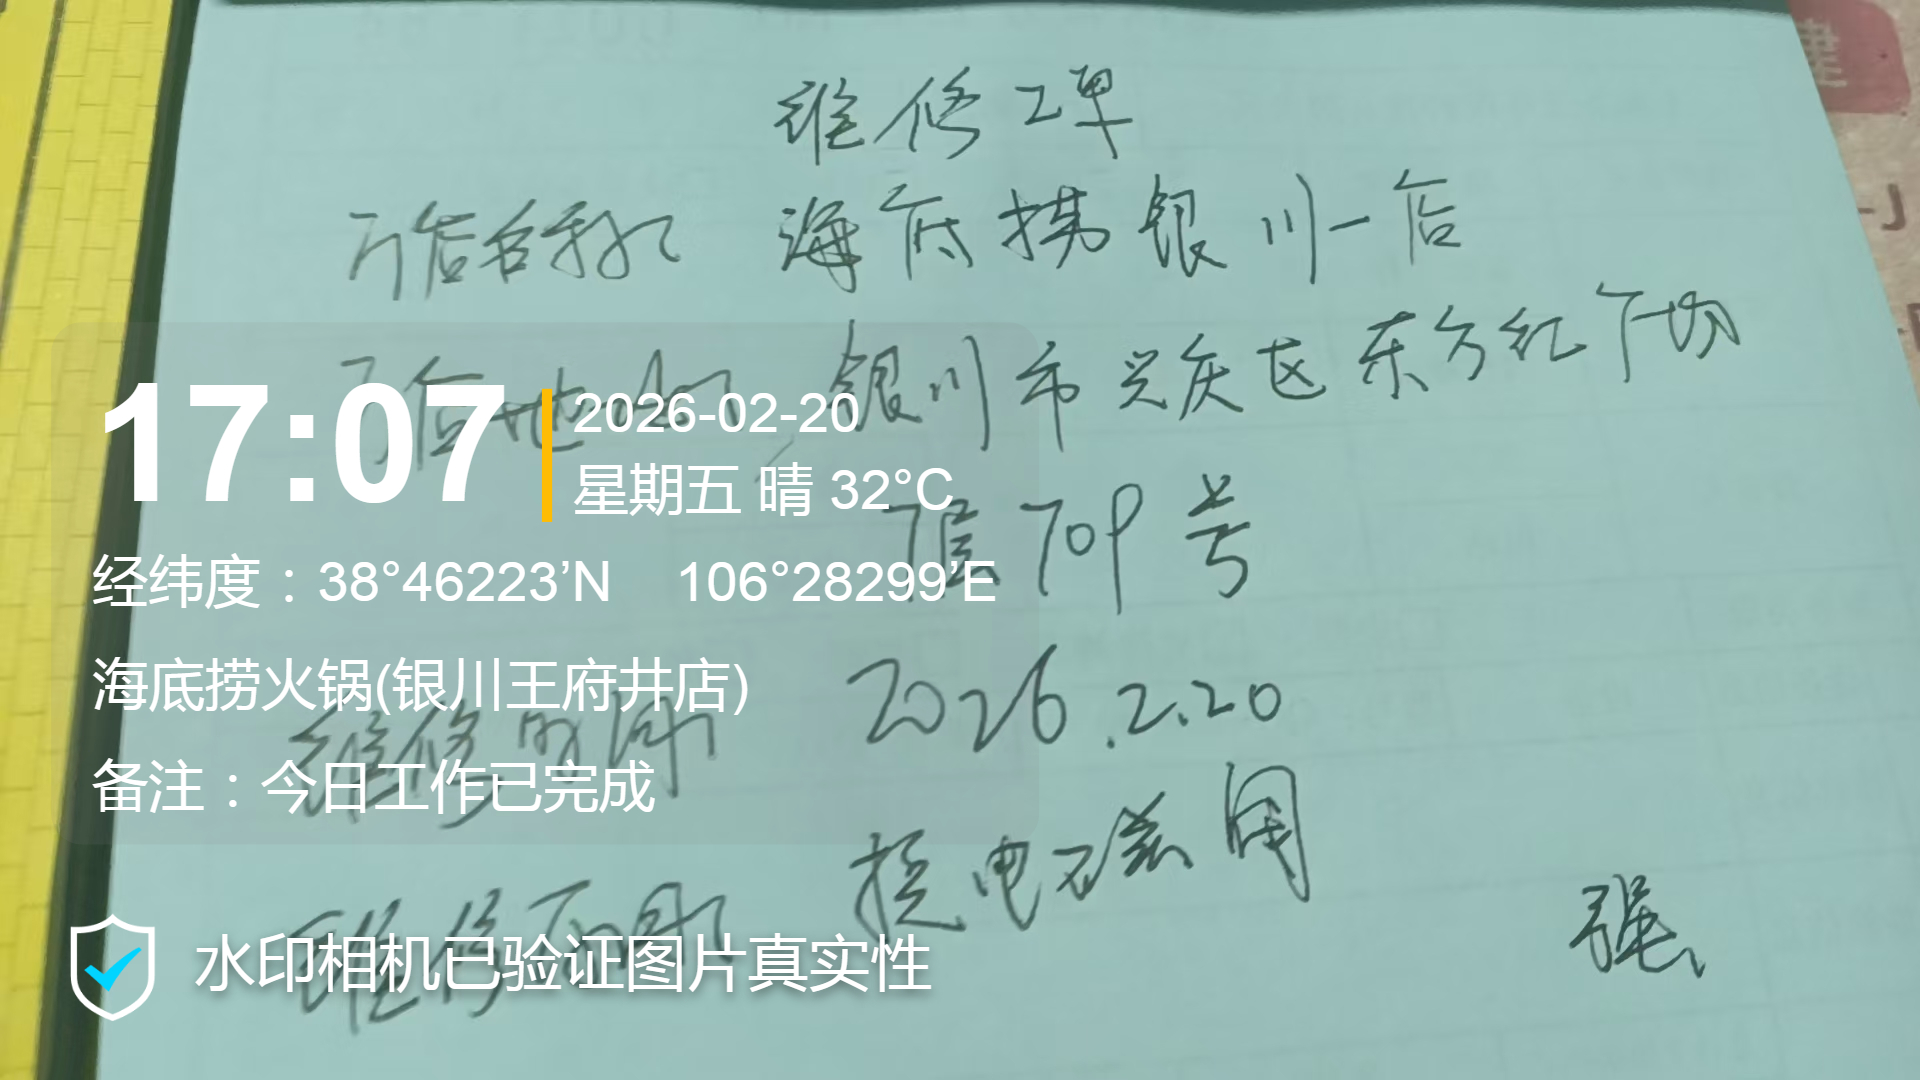 维修工单
门店名称 海底捞银川一店
门店地址 银川市兴庆区东方红广场
1层709号
维修时间 2026.2.20
维修 换电磁阀
强
17:07
2026-02-20
星期五 晴 32°C
经纬度：38°46223’N 106°28299’E
海底捞火锅(银川王府井店)
备注：今日工作已完成
水印相机已验证图片真实性